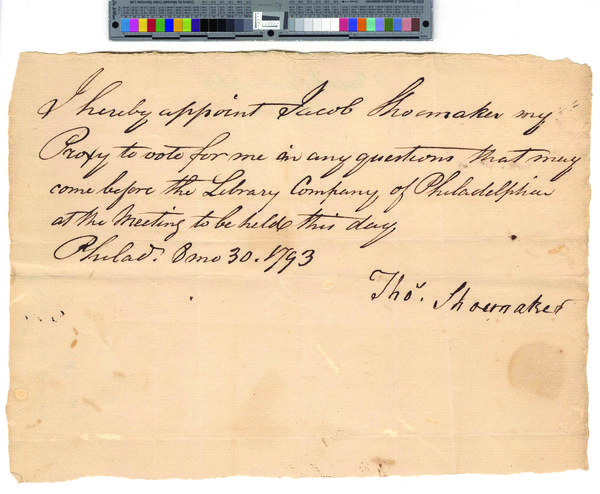 I hereby appoint Jacob Shoemaker my
Proxy to vote for me in any questions that may
come before the Library Company of Philadelphia
at the Meeting to be held this day
Philad.ᵃ 8 mo 30. 1793
Thoˢ. Shoemaker